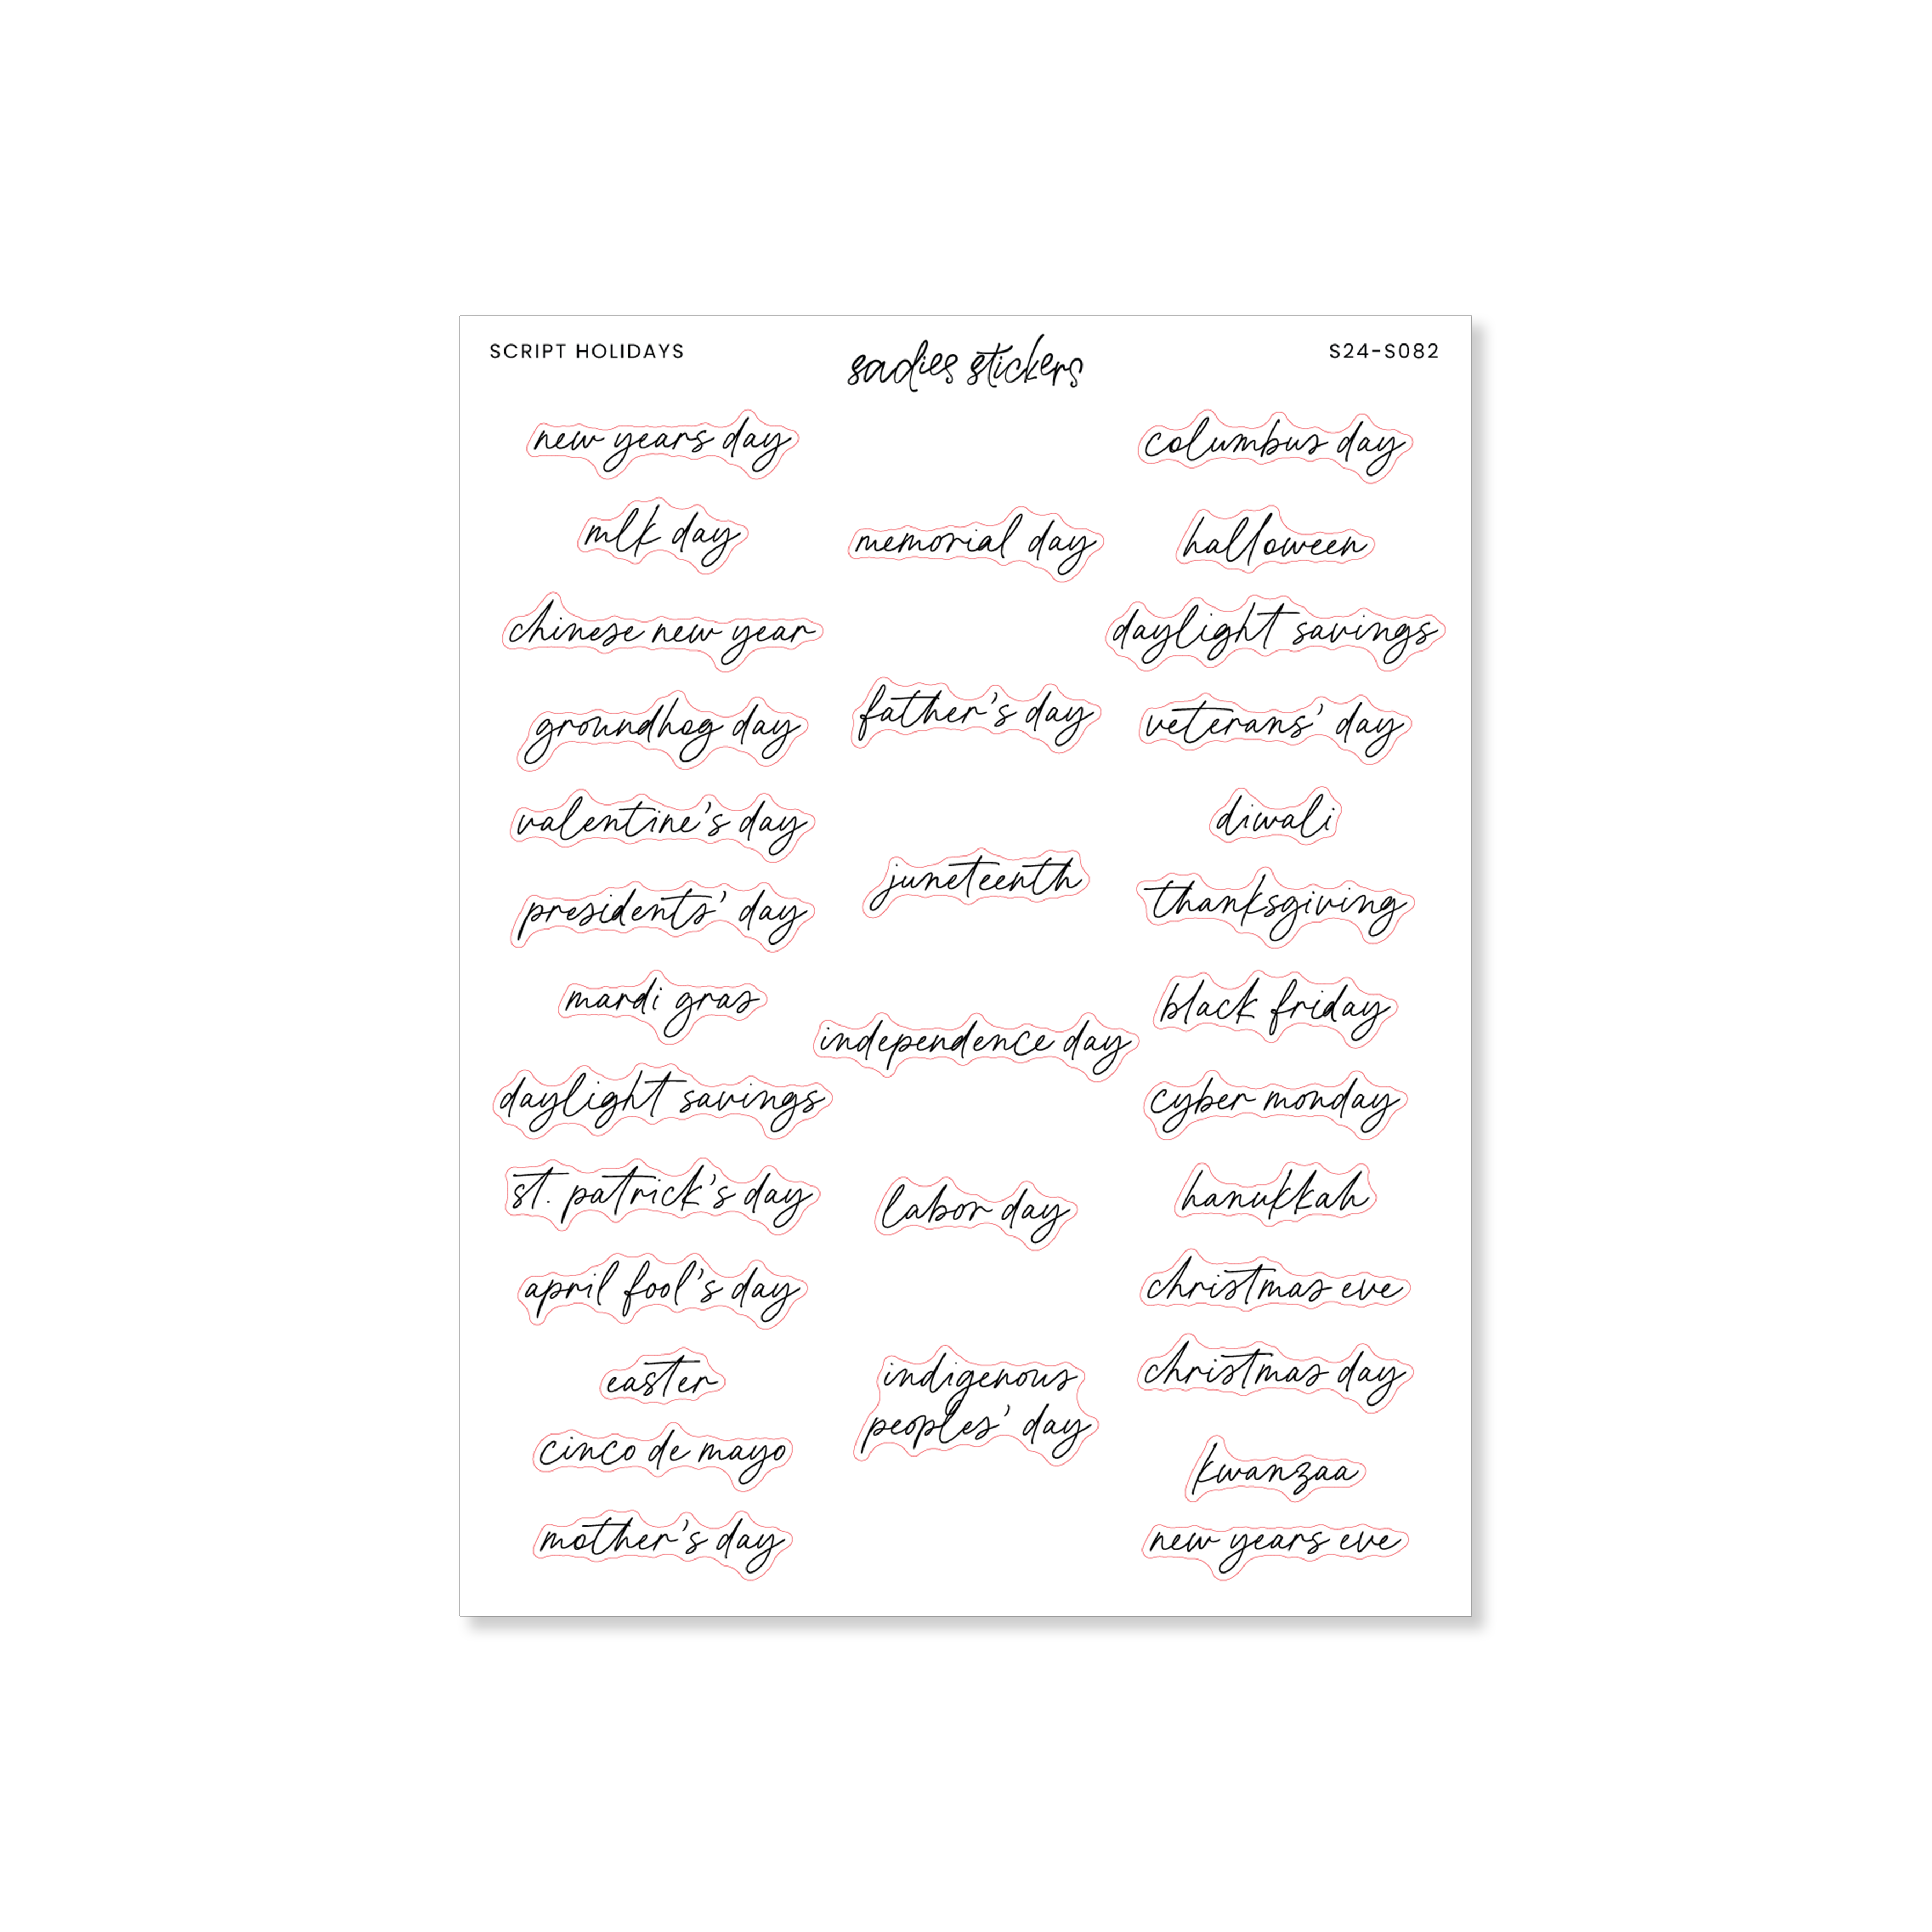 SCRIPT HOLIDAYS
sadies stickers
S24-S082
new years day
mlk day
chinese new year
groundhog day
valentine's day
presidents' day
mardi gras
daylight savings
st. patrick's day
april fool's day
easter
cinco de mayo
mother's day
memorial day
father's day
juneteenth
independence day
labor day
indigenous
peoples' day
columbus day
halloween
daylight savings
veterans' day
diwali
thanksgiving
black friday
cyber monday
hanukkah
christmas eve
christmas day
kwanzaa
new years eve